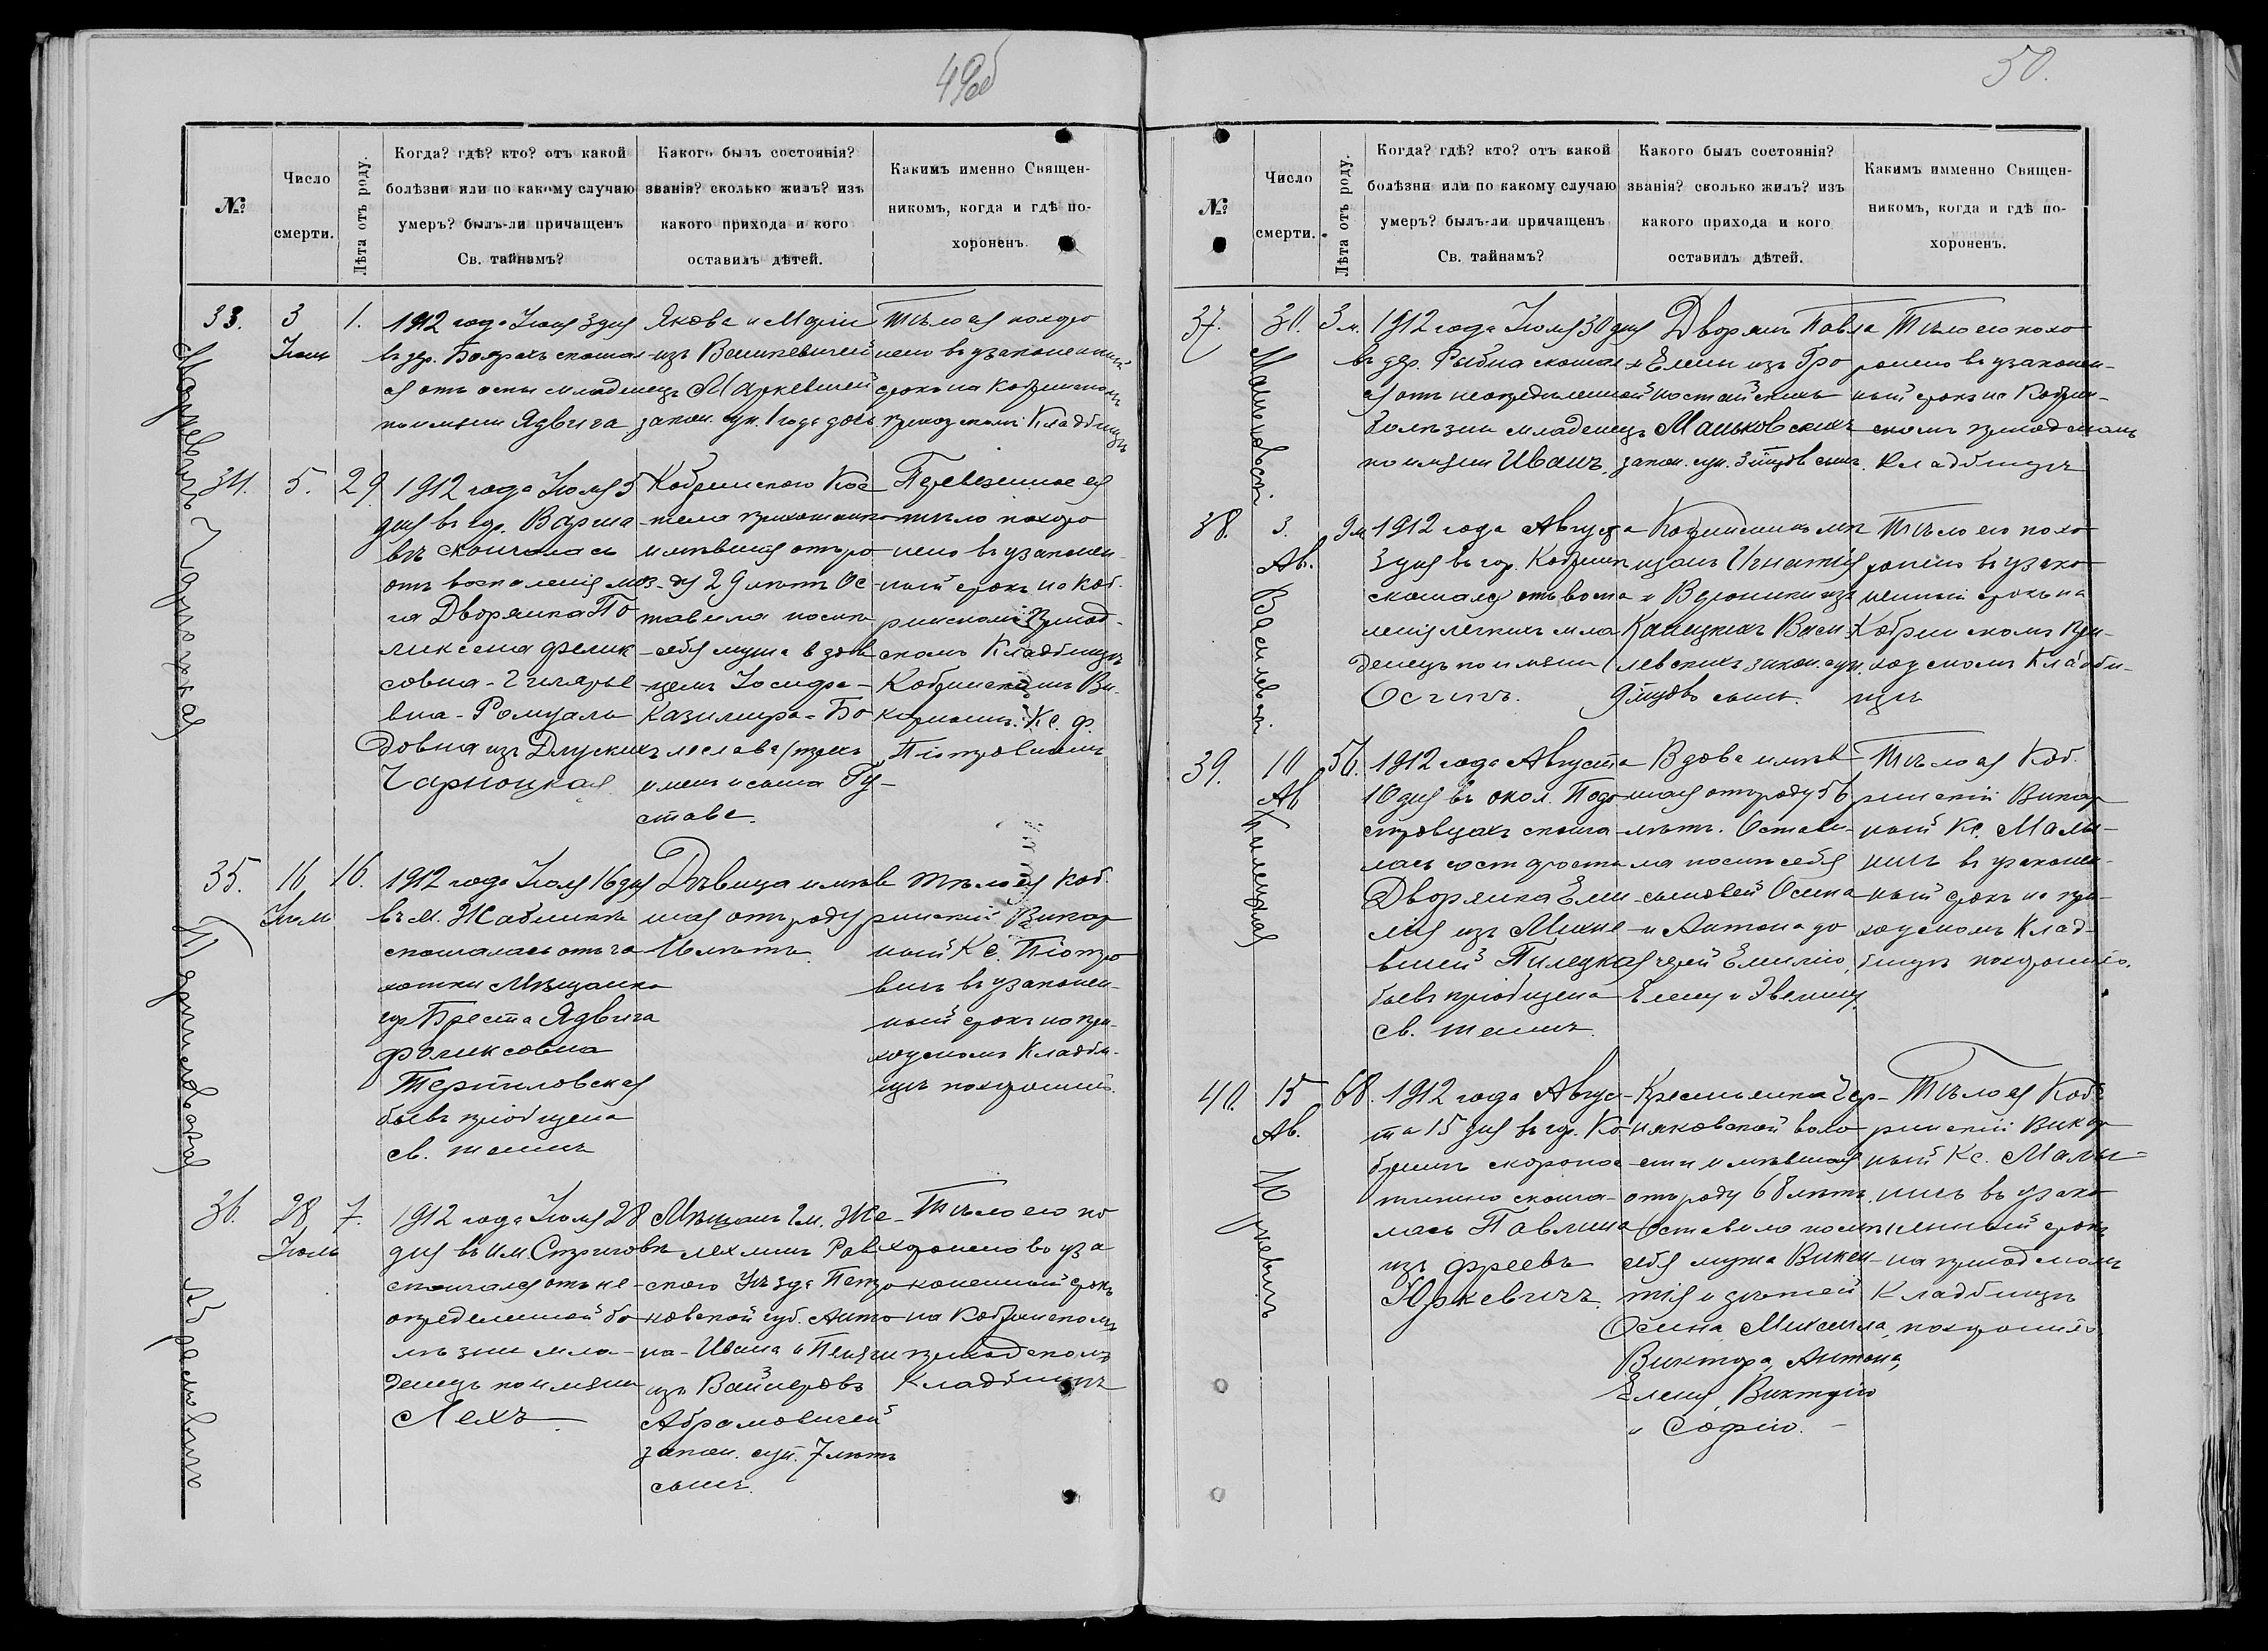 49об
№
Число
смерти.
Лѣта отъ роду.
Когда? гдѣ? кто? отъ какой
болѣзни или по какому случаю
умеръ? былъ-ли причащенъ
Св. тайнамъ?
Какого былъ состоянія?
званія? сколько жилъ? изъ
какого прихода и кого
оставилъ дѣтей.
Какимъ именно Священ-
никомъ, когда и гдѣ по-
хороненъ.
33.
3
Іюль
1.
1912 года Іюля 3 дня
въ дер. Боярахъ скончал-
ся отъ оспы младенецъ
по имени Ядвига
Якова и Маріи
изъ
Маркевичей
закон. суп. 1 года дочь
Тѣло ея похоро
нено въ узаконенный
срокъ на Кобринскомъ
приходскомъ Кладбищѣ
34.
5.
29.
1912 года Іюля 5
дня въ гор. Варша-
вѣ скончалась
отъ воспаленія моз-
га Дворянка По
ликсена Феликсовна
Ромуаль
довна изъ Длускихъ
Чарноцкая
Кобринскаго Кос
тела прихожанка
имѣвшая отъ ро
ду 29 лѣтъ Ос
тавила послѣ
себя мужа вдов
цемъ Іосифа-
Казимира-Бо
леслава /трехъ
именъ и сына Гу-
става.
Перевезенное ея
тѣло похоро
нено въ узаконен-
ный срокъ на Коб-
ринскомъ приход-
скомъ Кладбищѣ
Кобринскимъ Ви-
карнымъ Кс. Ф.
Піотровичемъ
35.
16
Іюль
16.
1912 года Іюля 16 дня
въ м. Жабинкѣ
скончалась отъ ча
хотки Мѣщанка
гор. Бреста Ядвига
Феликсовна
Терпиловская
бывъ пріобщена
св. тайнъ
Дѣвица имѣв
шая отъ роду
16 лѣтъ.
Тѣло ея Коб-
ринскій Викар
ный Кс. Піотро
вичъ въ узаконен-
ный срокъ на при-
ходскомъ Кладби-
щѣ похоронилъ.
36.
28
Іюль
7.
1912 года Іюля 28
дня въ им. Стриговѣ
скончался отъ не-
опредѣленной бо
лѣзни мла-
денецъ по имени
Лехъ
Мѣщанъ
ского Уѣзда Петро
ковской губ. Анто
на-Ивана и
изъ Вайнеровъ
Абрамовичей
закон. суп. 7 лѣтъ
сынъ.
Тѣло его по
хоронено въ уза
коненный срокъ
на Кобринскомъ
приходскомъ
Кладбищѣ
50.
№
Число
смерти.
Лѣта отъ роду.
Когда? гдѣ? кто? отъ какой
болѣзни или по какому случаю
умеръ? былъ-ли причащенъ
Св. тайнамъ?
Какого былъ состоянія?
званія? сколько жилъ? изъ
какого прихода и кого
оставилъ дѣтей.
Какимъ имменно Священ-
никомъ, когда и гдѣ по-
хороненъ.
37.
30.
3 м.
1912 года Іюля 30 дня
въ дер. Рыбна скончал
ся отъ неопредѣленной
болѣзни младенецъ
по имени Иванъ.
Дворянъ Павла
и Елены изъ Гро
Маньковскихъ
закон. суп. 3 мѣсяцовъ сынъ.
Тѣло его похо
ронено въ узаконен-
ный срокъ на Кобрин-
скомъ приходскомъ
Кладбищѣ
38.
3.
Ав.
9 м.
1912 года Августа
3 дня въ гор. Кобринѣ
скончался отъ воспа
ленія легкихъ мла
денецъ по имени
Осипъ.
Кобринскихъ мѣ
щанъ Игнатія
и Вероники изъ
Каницкихъ Васи
левскихъ закон. суп.
9 мѣсяцовъ сынъ.
Тѣло его похо
ронено въ узако
ненный срокъ на
Кобринскомъ при-
ходскомъ Кладби-
щѣ
39.
10
Ав
56.
1912 года Августа
10 дня въ окол. Подо
стровцахъ сконча
лась
Дворянка Еми
лія изъ Михне
вичей Пилецкая
бывъ пріобщена
св. тайнъ.
Вдова имѣв
шая отъ роду 56
лѣтъ. Остави-
ла послѣ себя
сыновей Осипа
и Антона до
черей Емилію,
Елену и Эвелину
Тѣло ея Коб-
ринскій Викар
ный Кс. Малы-
ничъ въ узаконен-
ный срокъ на при-
ходскомъ Клад-
бищѣ похоронилъ.
40.
15
Ав.
68.
1912 года Авгус-
та 15 дня въ гор. Ко
бринѣ скоропос
тижно сконча-
лась Павлина
изъ Фреевъ
Юркевичъ.
Крестьянка Чер-
няковской воло
сти имѣвшая
отъ роду 68 лѣтъ.
Оставила послѣ
себя мужа Викен-
тія и дѣтей
Осипа, Михаила,
Виктора, Антона,
Елену, Викторію
и Софію.
Тѣло ея Коб-
ринскій Викар
ный Кс. Малы-
ничъ въ узако
ненный срокъ
на приходскомъ
Кладбищѣ
похоронилъ
Маркевичъ
Чарноцкая
Терпиловская
Абрамовичъ
Маньковскій
Василевскій
Пилецкая
Юркевичъ